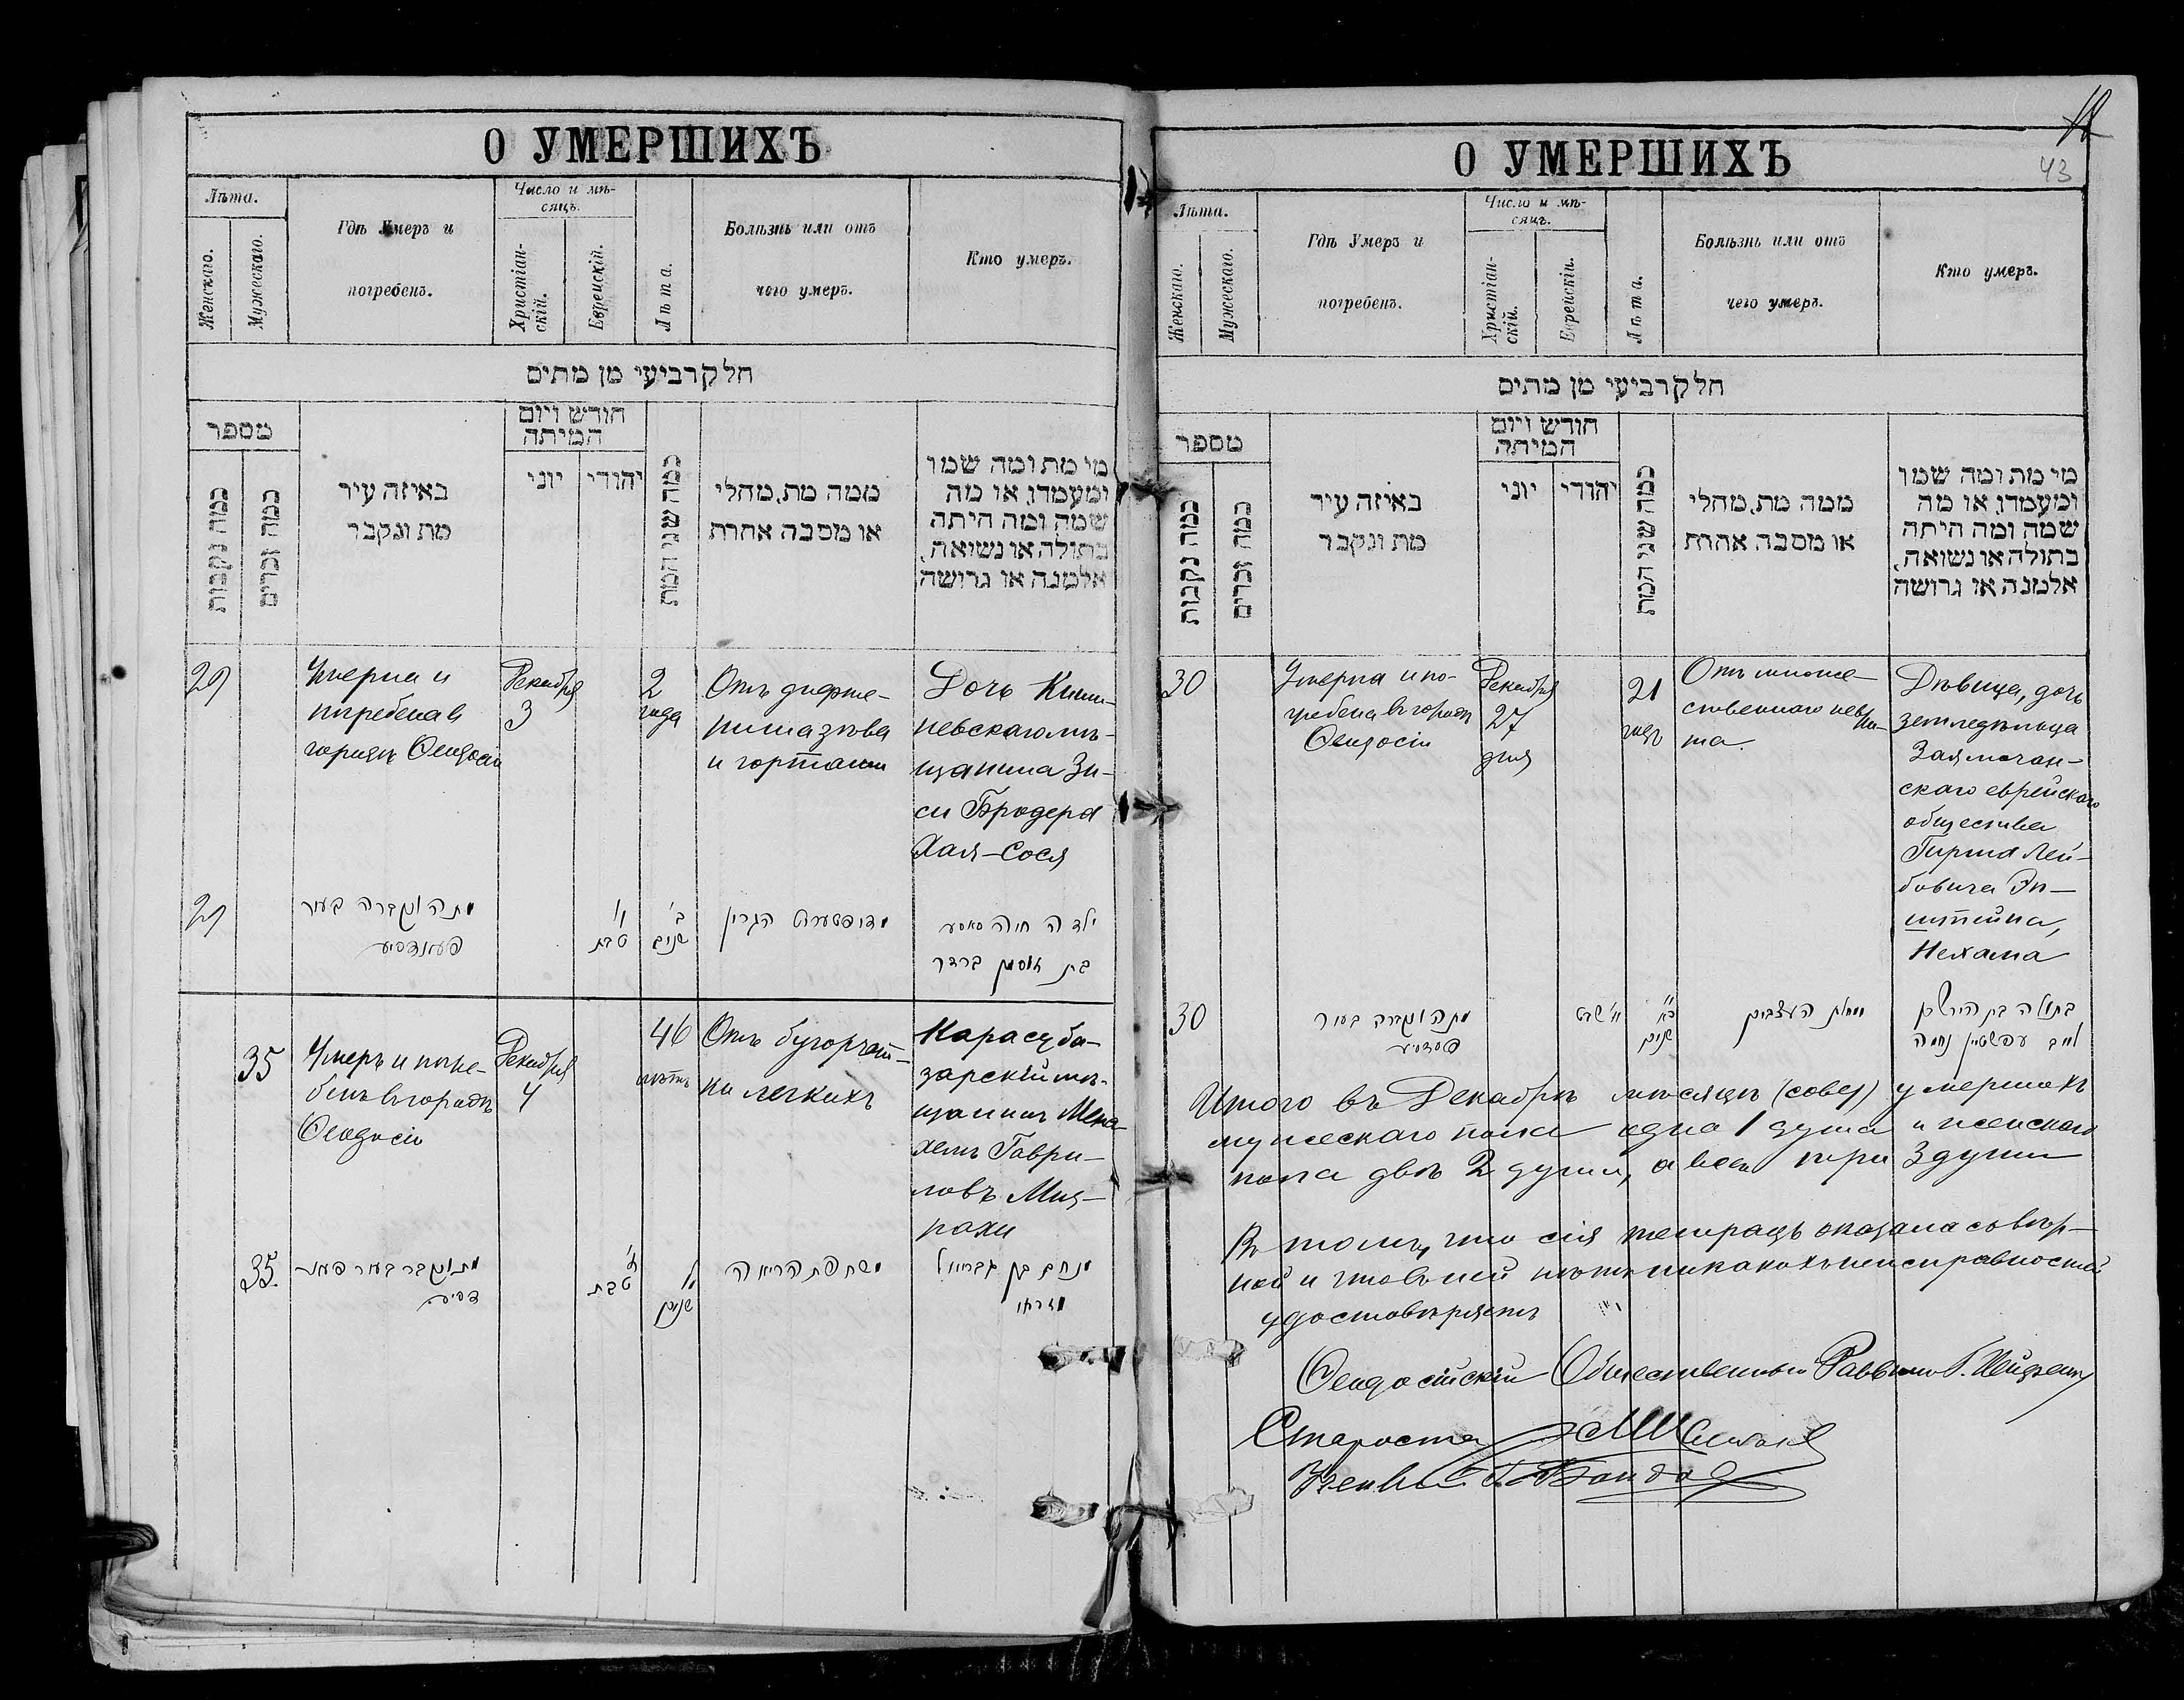 О УМЕРШИХЪ
Лѣта.
Женскаго.
Мужескаго.
Гдѣ Умеръ и
погребенъ.
Число и мѣ-
сяцъ.
Христіан-
скій.
Еврейскій.
Лѣта.
Болѣзнь или отъ
чего умеръ.
Кто умеръ.
חלק רביעי מן מתים
מספר
כמה נקבות
כמה זכרים
באיזה עיר
מת ונקבר
חודש ויום
המיתה
יוני
יהודי
כמה שני המת
ממה מת, מחלי
או מסבה אחרת
מי מת ומה שמו
ומעמדו, או מה
שמה ומה היתה
בתולה או נשואה,
אלמנה או גרושה
29
Умерла и
погребена въ
городѣ Ѳеодосіи
Декабря
3
2
года
Отъ дифте-
рита зѣва
и гортани
Дочь Киши-
невскаго мѣ-
щанина Зу-
си Бродера
Хая-Сося
29
מתה ונקברה בעיר
פעאדסיע
ו'
טבת
ב'
שנים
הגרון
ילדה חיה סאסע
בת זוסמן ברדר
35
Умеръ и погре-
бенъ въ городѣ
Ѳеодосіи
Декабря
4
46
лѣтъ
Отъ бугорчат-
ки легкихъ
Карасуба-
зарскій мѣ-
щанинъ Мена-
хемъ Гаври-
ловъ Миз-
рахи
35.
מת ונקבר בעיר פעאד
דסיע
ז'
טבת
שנים
משחפת הריאה
מנחם בן גבריאל
מזרחי
О УМЕРШИХЪ
43
Лѣта.
Женскаго.
Мужескаго.
Гдѣ Умеръ и
погребенъ.
Число и мѣ-
сяцъ.
Христіан-
скій.
Еврейскій.
Лѣта.
Болѣзнь или отъ
чего умеръ.
Кто умеръ.
חלק רביעי מן מתים
מספר
כמה נקבות
כמה זכרים
באיזה עיר
מת ונקבר
חודש ויום
המיתה
יוני
יהודי
כמה שני המת
ממה מת, מחלי
או מסבה אחרת
מי מת ומה שמו
ומעמדו, או מה
שמה ומה היתה
בתולה או נשואה,
אלמנה או גרושה
30
Умерла и по-
гребена въ городѣ
Ѳеодосіи
Декабря
27
дня
21
годъ
Отъ множе-
ственнаго неври-
та.
Дѣвица, дочь
земледѣльца
скаго еврейскаго
общества
Гирша Лей-
бовича Эп-
штейна,
Нехама
30
מתה ונקברה בעיר
שבט
כ"א
שנים
מחלת העצבים
בתולה בת הירש בן
לייב עפשטיין נחמה
Итого въ Декабрѣ мѣсяцѣ умершихъ
мужескаго пола одна 1 душа и женскаго
пола двѣ 2 души, а всего три 3 души
Въ томъ, что сія тетрадь оказалась вѣр-
ной и что въ ней нѣтъ никакихъ неисправностей
удостовѣряетъ
Ѳеодосійскій Общественный Раввинъ
Староста